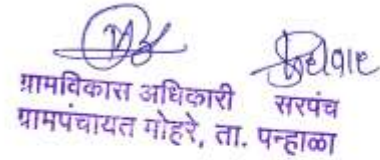 ग्रामविकास अधिकारी सरपंच
ग्रामपंचायत मोहरे, ता. पन्हाळा